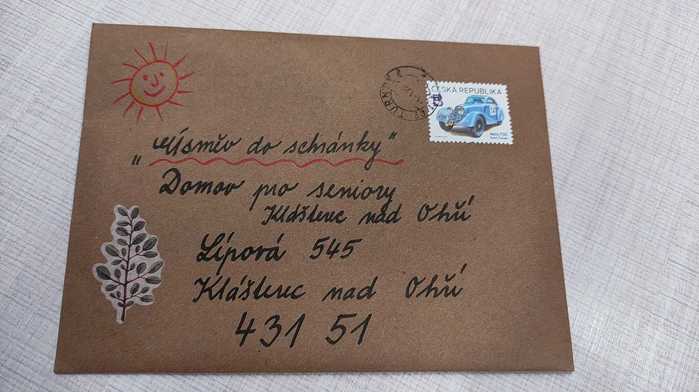 ČESKÁ REPUBLIKA
„Úsměv do schránky“
Domov pro seniory
Klášterec nad Ohří
Lípová 545
Klášterec nad Ohří
431 51